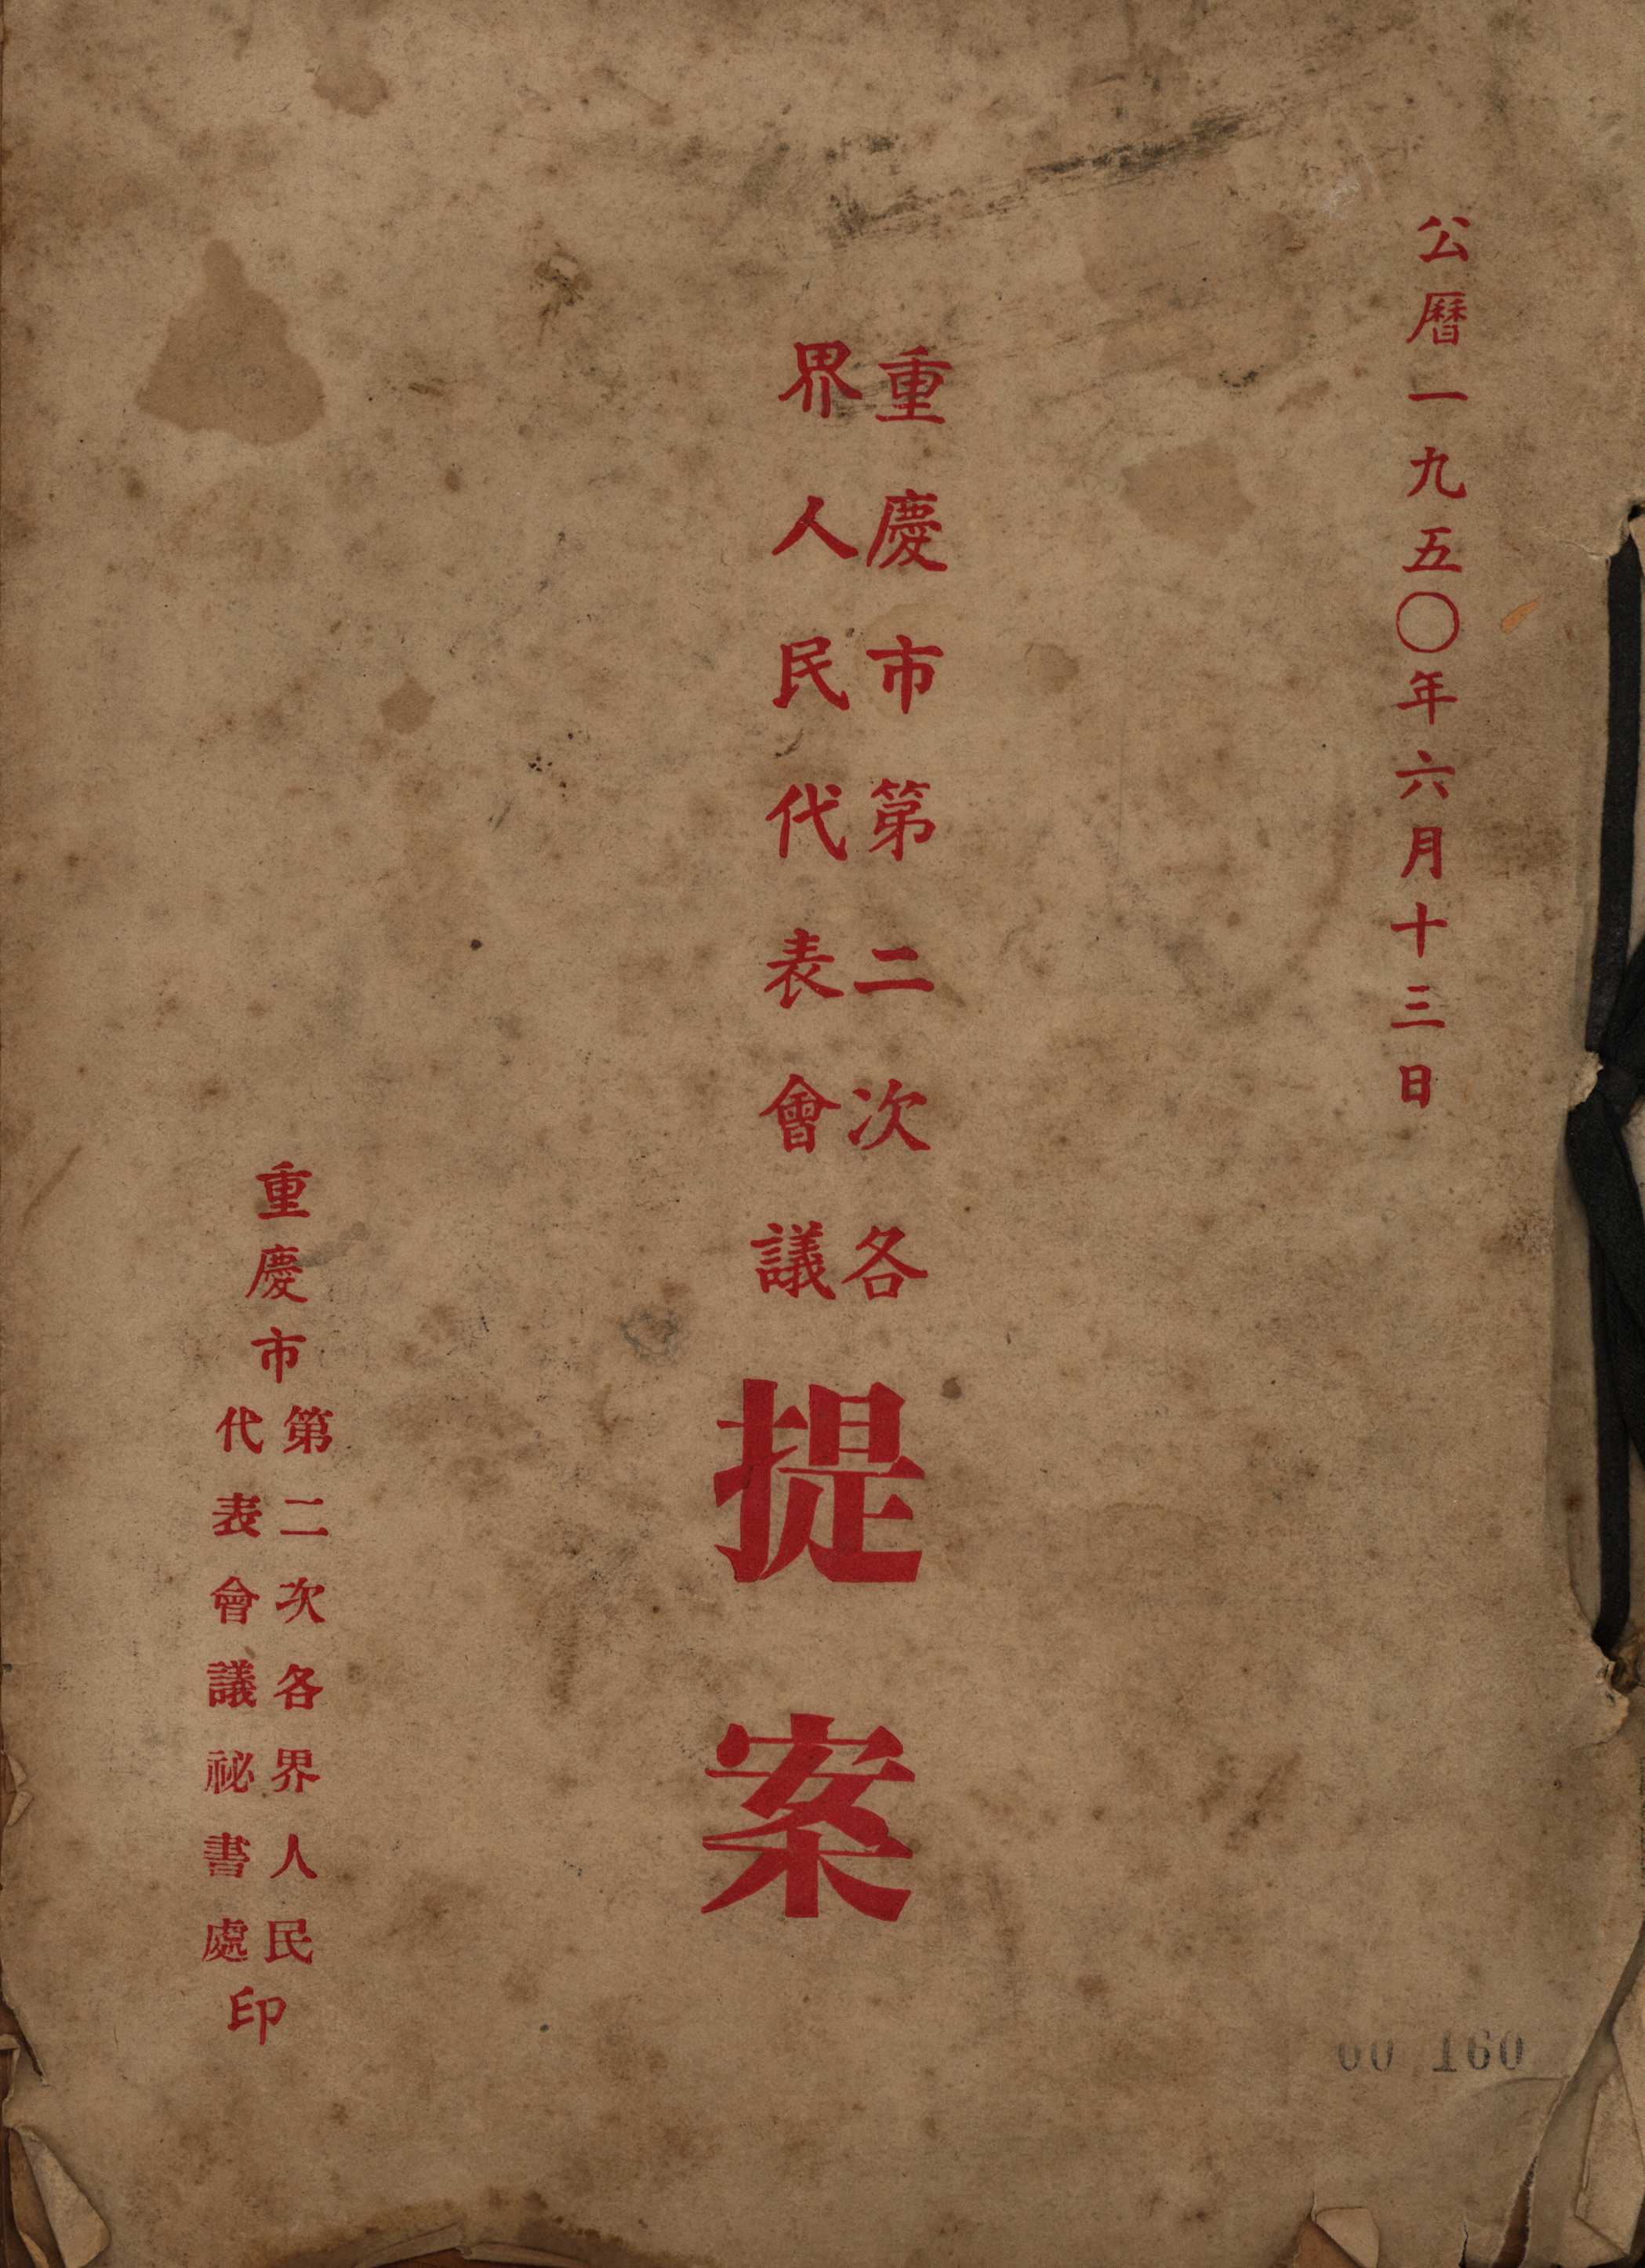 公曆一九五〇年六月十三日
重慶市第二次各
界人民代表會議
提案
重慶市
第二次各界人民
代表會議祕書處
印
00 160